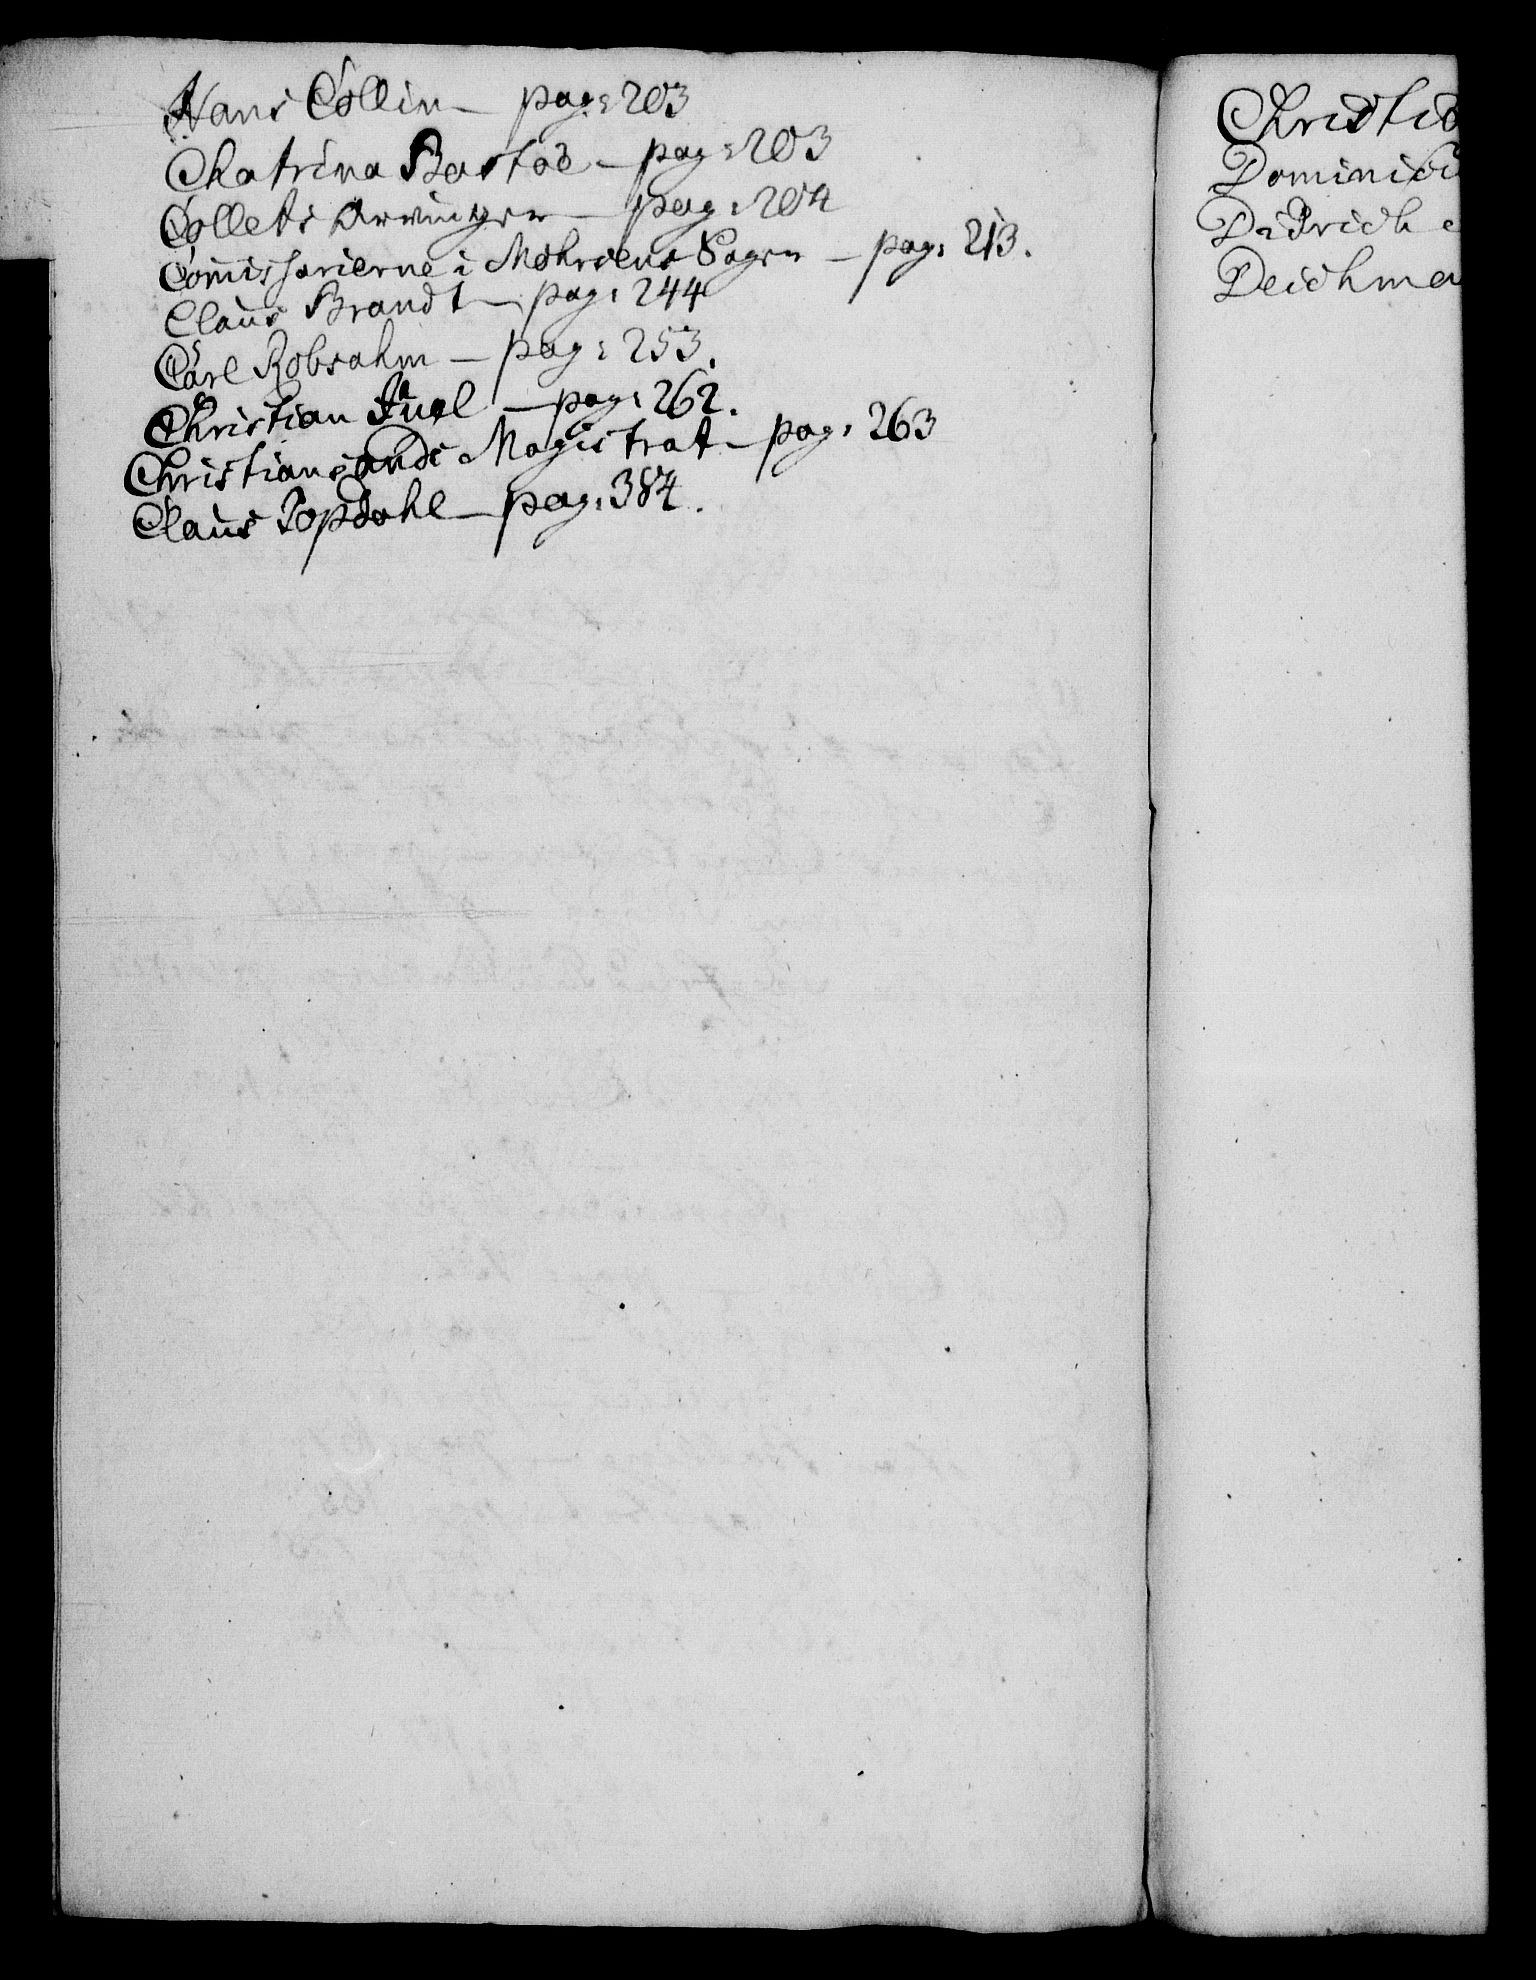 Hans Collin — pag: 203
Chatrina Bastoe — pag: 203
Collets Arvinger — pag: 204
Comissarierne i Mohrsens Sager — pag: 213.
Claus Brandt — pag: 244
Carl Robsahm — pag: 253.
Christian Juel — pag: 262.
Christiansands Magistrat — pag: 263
Claus Topdahl — pag: 384.
Christia
Dominicu
Didrich
Deichman